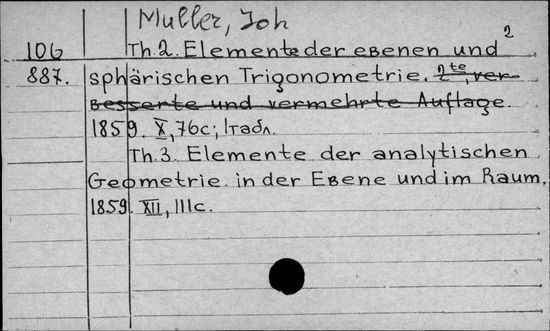 Muller, Joh
2
106 Th.2. Elemente der ebenen und
887. sphärischen Trigonometrie. 2te, ver-
besserte und vermehrte Auflage.
1859. X, 76c; 1табл.
Th.3. Elemente der analytischen
Geometrie. in der Ebene und im Raum.
1859. XII, 111c.